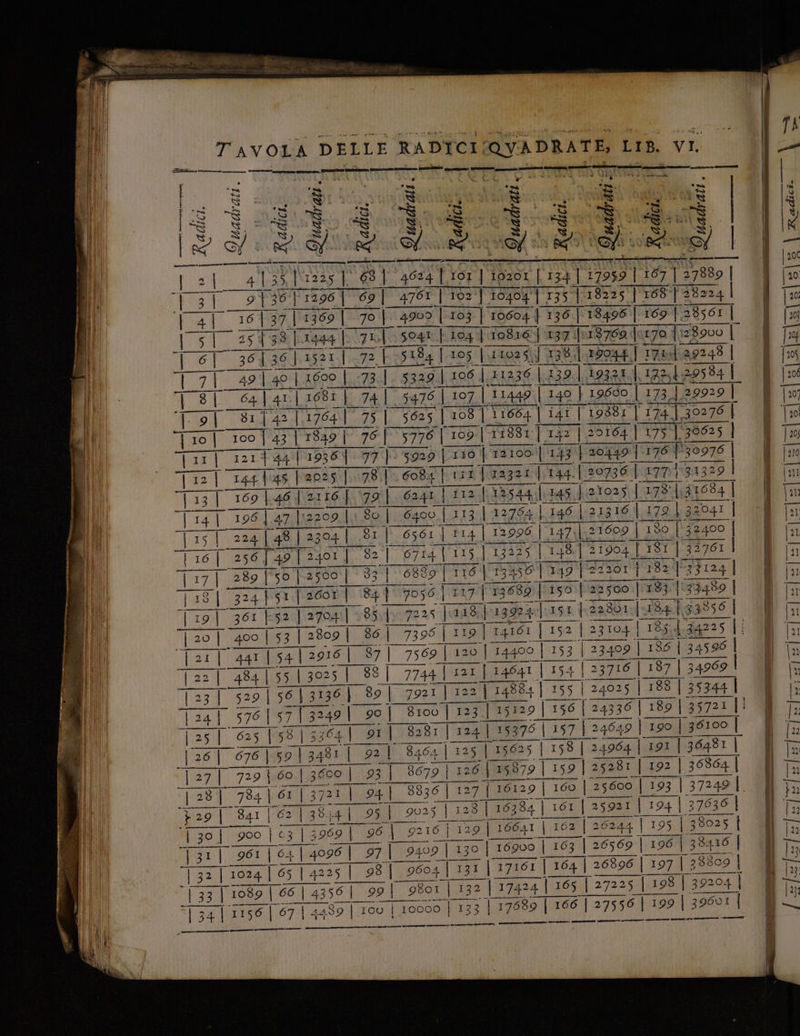 TAVOLA DELLE RADICI QVADRATE, LIB. VI.
Radici. Quadrati. Radici. Quadrati. Radici. Quadrati. Radici. Quadrati. Radici. Quadrati. Radici. Quadrati.
| 2 | 4 | 35 | 1225 | 68 | 4624 | 101 | 10201 | 134 | 17959 | 167 | 27889 |
| 3 | 9 | 36 | 1296 | 69 | 4761 | 102 | 10404 | 135 | 18225 | 168 | 28224 |
| 4 | 16 | 37 | 1369 | 70 | 4900 | 103 | 10604 | 136 | 18496 | 169 | 28561 |
| 5 | 25 | 38 | 1444 | 71 | 5041 | 104 | 10816 | 137 | 18769 | 170 | 28900 |
| 6 | 36 | 36 | 1521 | 72 | 5184 | 105 | 11025 | 138 | 19044 | 171 | 29248 |
| 7 | 49 | 40 | 1600 | 73 | 5329 | 106 | 11236 | 139 | 19321 | 172 | 29584 |
| 8 | 64 | 41 | 1681 | 74 | 5476 | 107 | 11449 | 140 | 19600 | 173 | 29929 |
| 9 | 81 | 42 | 1764 | 75 | 5625 | 108 | 11664 | 141 | 19881 | 174 | 30276 |
| 10 | 100 | 43 | 1849 | 76 | 5776 | 109 | 11881 | 142 | 20164 | 175 | 30625 |
| 11 | 121 | 44 | 1936 | 77 | 5929 | 110 | 12100 | 143 | 20449 | 176 | 30976 |
| 12 | 144 | 45 | 2025 | 78 | 6084 | 111 | 12321 | 144 | 20736 | 177 | 31329 |
| 13 | 169 | 46 | 2116 | 79 | 6241 | 112 | 12544 | 145 | 21025 | 178 | 31684 |
| 14 | 196 | 47 | 2209 | 80 | 6400 | 113 | 12764 | 146 | 21316 | 179 | 32041 |
| 15 | 224 | 48 | 2304 | 81 | 6561 | 114 | 12996 | 147 | 21609 | 180 | 32400 |
| 16 | 256 | 49 | 2401 | 82 | 6714 | 115 | 13225 | 148 | 21904 | 181 | 32761 |
| 17 | 289 | 50 | 2500 | 83 | 6889 | 116 | 13456 | 149 | 22201 | 182 | 33124 |
| 18 | 324 | 51 | 2601 | 84 | 7056 | 117 | 13689 | 150 | 22500 | 183 | 33489 |
| 19 | 361 | 52 | 2704 | 85 | 7225 | 118 | 13924 | 151 | 22801 | 184 | 33856 |
| 20 | 400 | 53 | 2809 | 86 | 7396 | 119 | 14161 | 152 | 23104 | 185 | 34225 |
| 21 | 441 | 54 | 2916 | 87 | 7569 | 120 | 14400 | 153 | 23409 | 186 | 34596 |
| 22 | 484 | 55 | 3025 | 88 | 7744 | 121 | 14641 | 154 | 23716 | 187 | 34969 |
| 23 | 529 | 56 | 3136 | 89 | 7921 | 122 | 14884 | 155 | 24025 | 188 | 35344 |
| 24 | 576 | 57 | 3249 | 90 | 8100 | 123 | 15129 | 156 | 24336 | 189 | 35721 |
| 25 | 625 | 58 | 3364 | 91 | 8281 | 124 | 15376 | 157 | 24649 | 190 | 36100 |
| 26 | 676 | 59 | 3481 | 92 | 8464 | 125 | 15625 | 158 | 24964 | 191 | 36481 |
| 27 | 729 | 60 | 3600 | 93 | 8679 | 126 | 15879 | 159 | 25281 | 192 | 36864 |
| 28 | 784 | 61 | 3721 | 94 | 8836 | 127 | 16129 | 160 | 25600 | 193 | 37249 |
| 29 | 841 | 62 | 3844 | 95 | 9025 | 128 | 16384 | 161 | 25921 | 194 | 37636 |
| 30 | 900 | 63 | 3969 | 96 | 9216 | 129 | 16641 | 162 | 26244 | 195 | 38025 |
| 31 | 961 | 64 | 4096 | 97 | 9409 | 130 | 16900 | 163 | 26569 | 196 | 38416 |
| 32 | 1024 | 65 | 4225 | 98 | 9604 | 131 | 17161 | 164 | 26896 | 197 | 38809 |
| 33 | 1089 | 66 | 4356 | 99 | 9801 | 132 | 17424 | 165 | 27225 | 198 | 39204 |
| 34 | 1156 | 67 | 4489 | 100 | 10000 | 133 | 17689 | 166 | 27556 | 199 | 39601 |